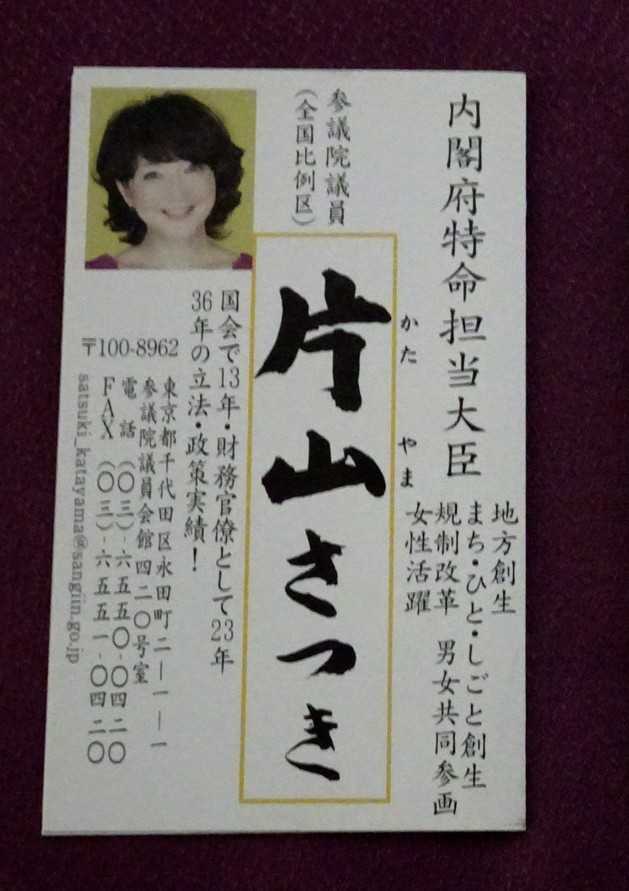 内閣府特命担当大臣
地方創生
まち・ひと・しごと創生
規制改革 男女共同参画
女性活躍
参議院議員
(全国比例区)
かた やま
片山さつき
国会で13年・財務官僚として23年
36年の立法・政策実績!
〒100-8962
東京都千代田区永田町二―一―一
参議院議員会館四二〇号室
電話 (〇三)-六五五〇-〇四二〇
FAX (〇三)-六五五一-〇四二〇
satsuki_katayama@sangiin.go.jp